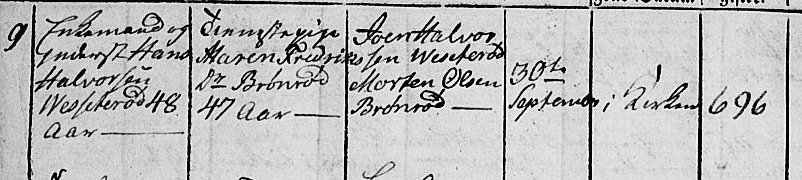 9
Enkemand og
Inderst Hans
Halvorsen
Wesseterød 48
Aar —
Tienstepige
Maren Fredriks
Dr Brønrød
47 Aar —
Joen Halvor
sen Wesseterød
Morten Olsen
Brønrød —
30te
September
i Kirken
696